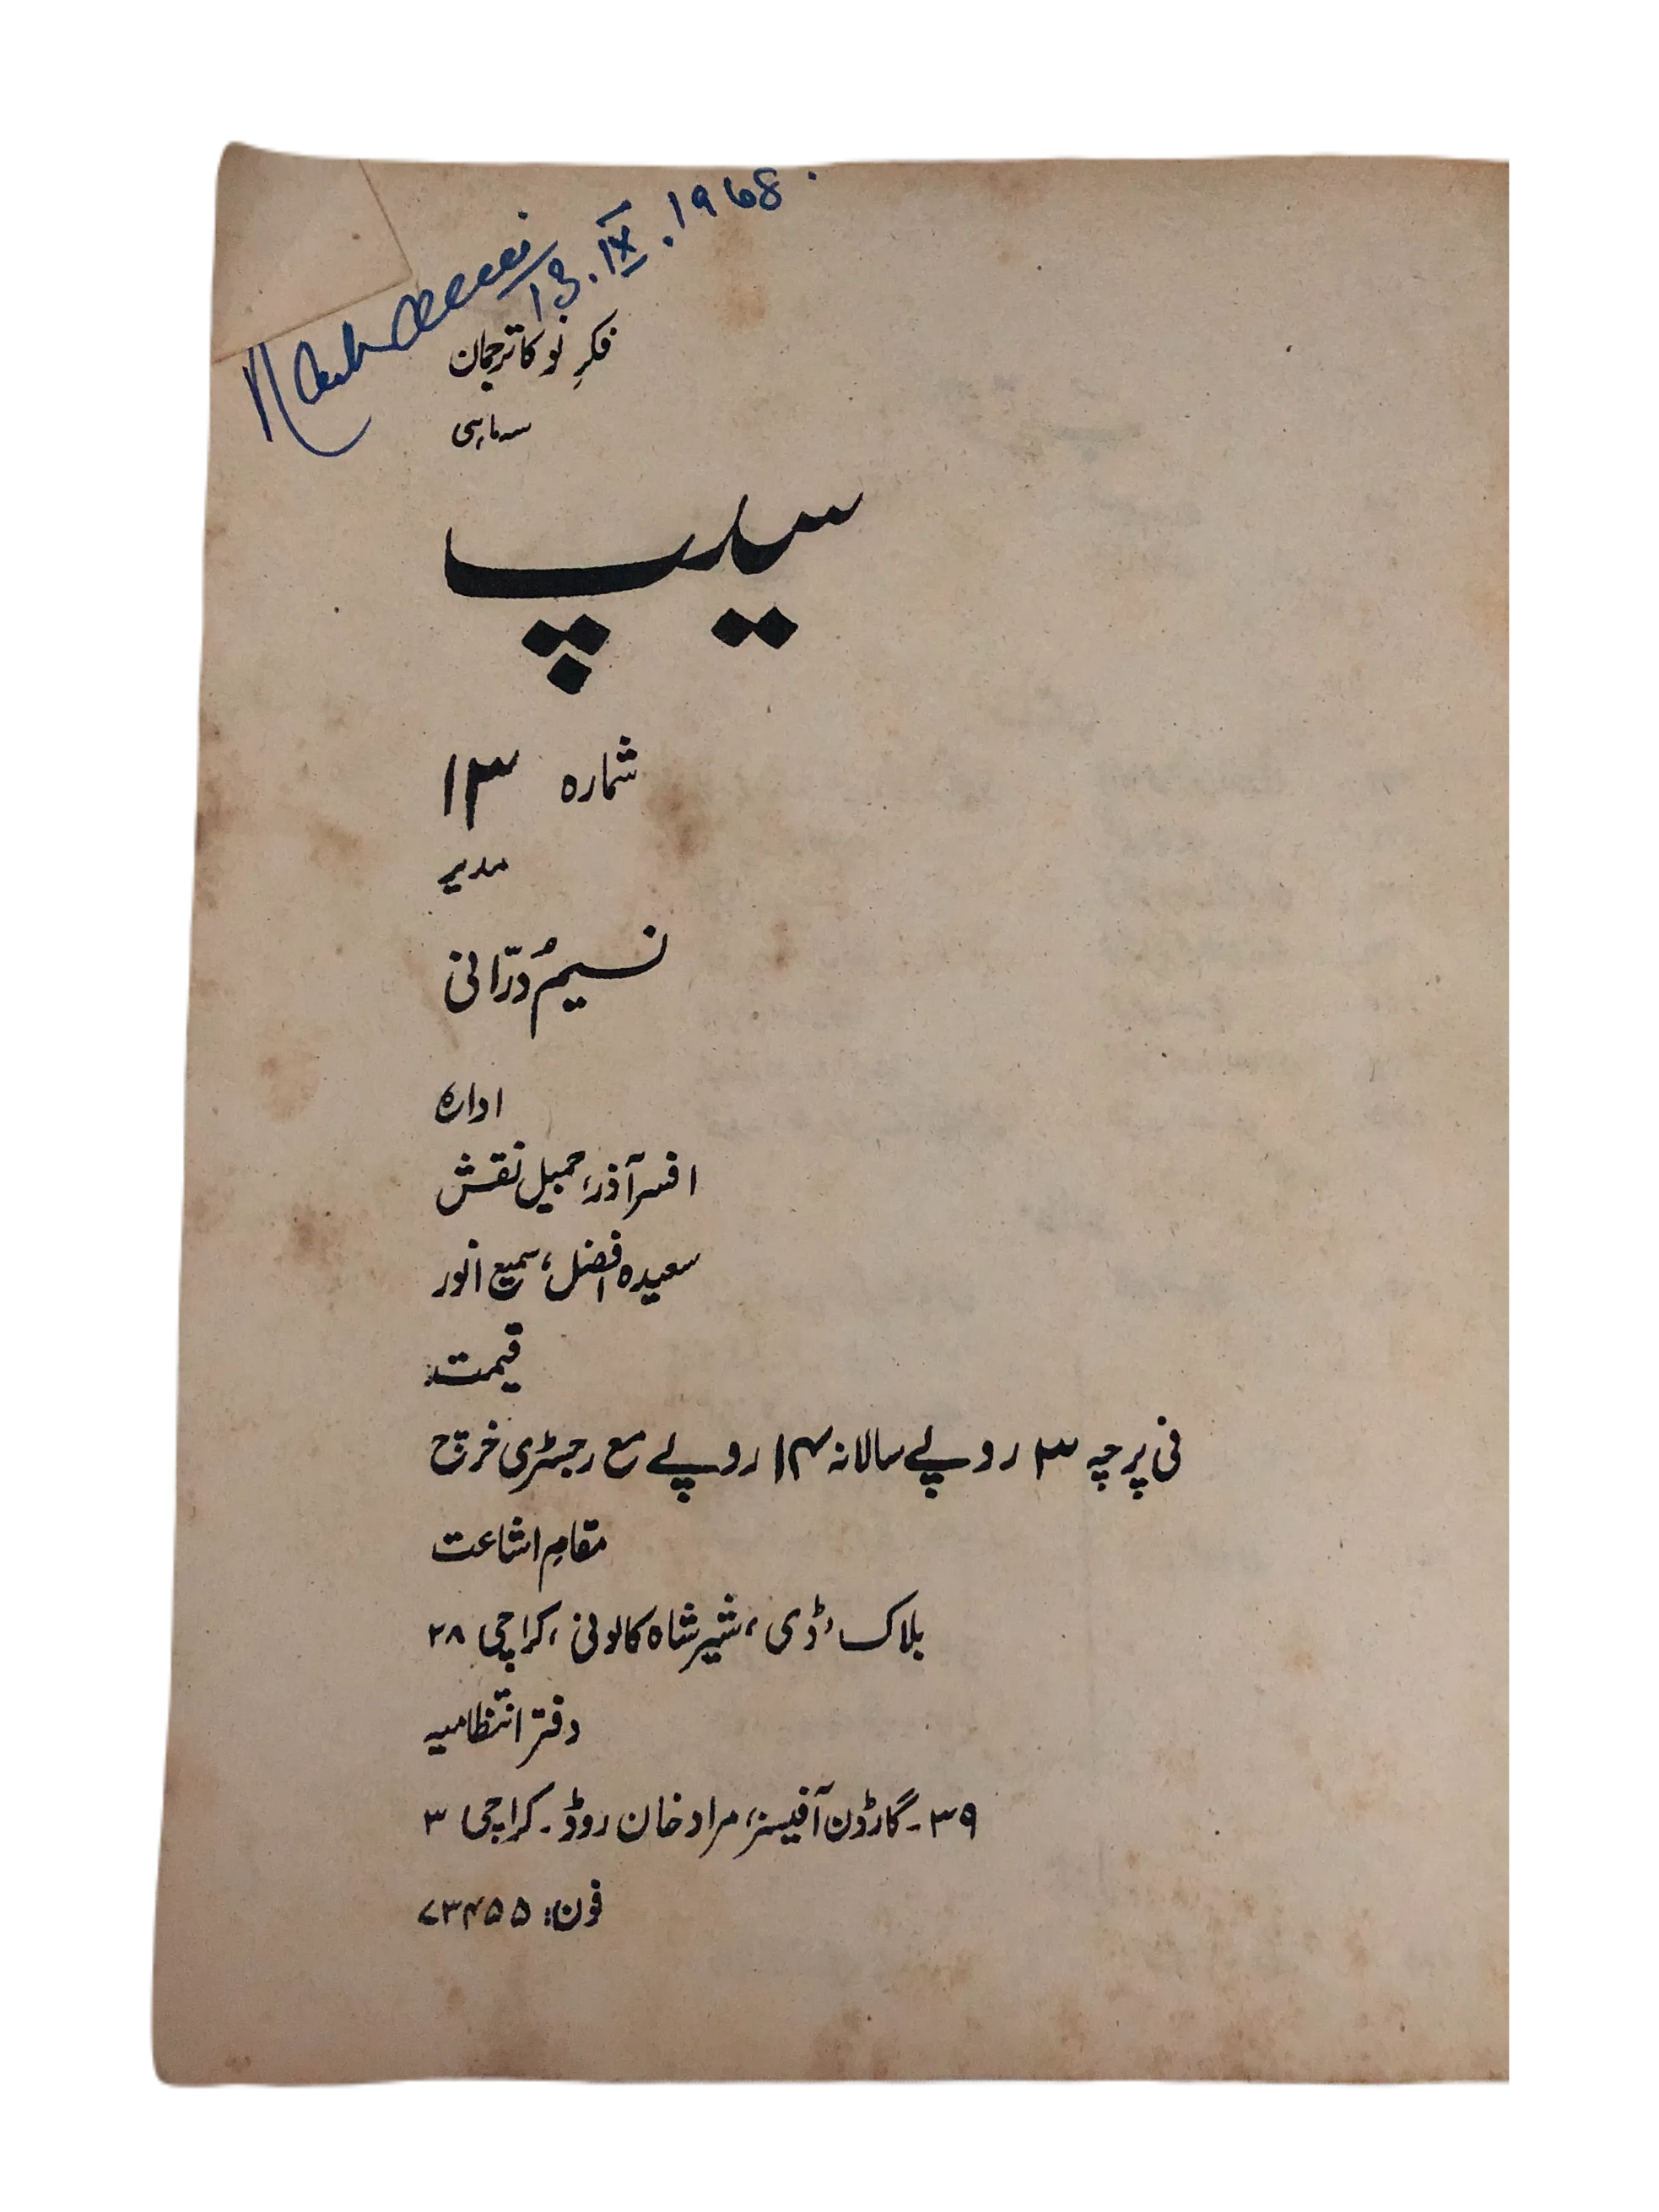 13.IX.1968.
فکرِ نو کا ترجمان
سہ ماہی
سیپ
شمارہ ۱۳
مدیر
نسیم دُرّانی
ادارہ
افسر آذر، جمیل نقش
سعیدہ افضل، سمیع انور
قیمت
فی پرچہ ۳ روپے سالانہ ۱۴ روپے مع رجسٹری خرچ
مقامِ اشاعت
بلاک ’ڈی‘، شیر شاہ کالونی، کراچی ۲۸
دفتر انتظامیہ
۳۹۔ گارڈن آفیسز، مراد خان روڈ۔ کراچی ۳
فون: ۷۳۴۵۵